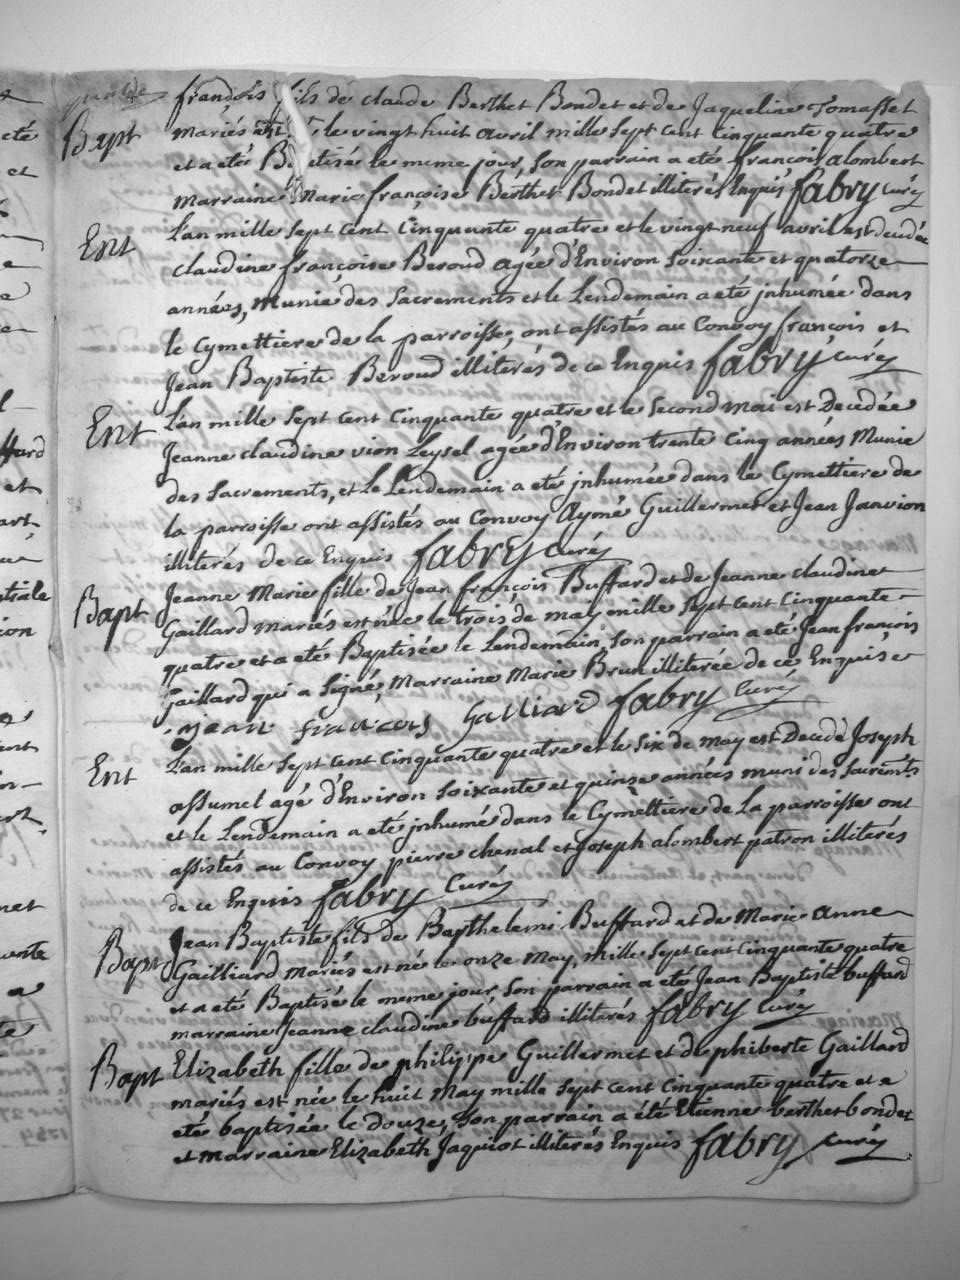 Bapt françois fils de claude Berthet Bondet et de Jaqueline Tomasset
mariés est le vingt huit avril mille sept cent cinquante quatre
et a eté Batisé le meme jour, son parrain a eté françois alombert
marraine Marie françoise Berthet Bondet illiterés Enquis fabry curéz
Ent L'an mille sept cent cinquante quatre et le vingt neuf avril est decedée
claudine françoise Beroud agée d'Environ soixante et quatorze
années, munie des sacrements et le Lendemain a eté jnhumée dans
le cymettiere de la parroisse, ont assistés au Convoy françois et
Jean Baptiste Beroud illiterés de ce Enquis fabry curéz
Ent L'an mille sept cent cinquante quatre et le second mai est Decedée
Jeanne claudine vion Leysel agée d'Environ trente cinq années Munie
des sacrements, et le Lendemain a eté jnhumée dans le Cymettiere de
la parroisse ont assistés au Convoy Aymé Guillermet et Jean Janvion
illiterés de ce Enquis fabry curéz
Bapt Jeanne Marie fille de Jean françois Buffard et de Jeanne claudine
Gaillard mariés est née le trois de may mille sept cent cinquante
quatre et a eté Baptisée le Lendemain, son parrain a eté Jean françois
Gaillard qui a signé, Marraine Marie Brun illiterée de ce Enquise
jean francois Galliard fabry curéz
Ent L'an mille sept cent cinquante quatre et le six de may est Decedé Joseph
assumel agé d'Environ soixante et quinze années muni des sacremts
et le Lendemain a eté jnhumé dans le Cymettiere de La parroisse ont
assistés au Convoy pierre chenal et Joseph alombert patron illiterés
de ce Enquis fabry Curéz
Bapt Jean Baptiste fils de Barthelemi Buffard et de Marie anne
Gailliard mariés est né le onze May, mille sept cent cinquante quatre
et a eté Baptisé le meme jour, son parrain a eté Jean Baptiste buffard
marraine jeanne claudine buffard illiterés fabry curéz
Bapt Elizabeth fille de philippe Guillermet et de phiberte Gaillard
mariés est née le huit May mille sept cent cinquante quatre et a
eté baptisée le douze, son parrain a été Etienne berthet bondet
et marraine Elizabeth Jaquiot illiterés Enquis fabry curéz